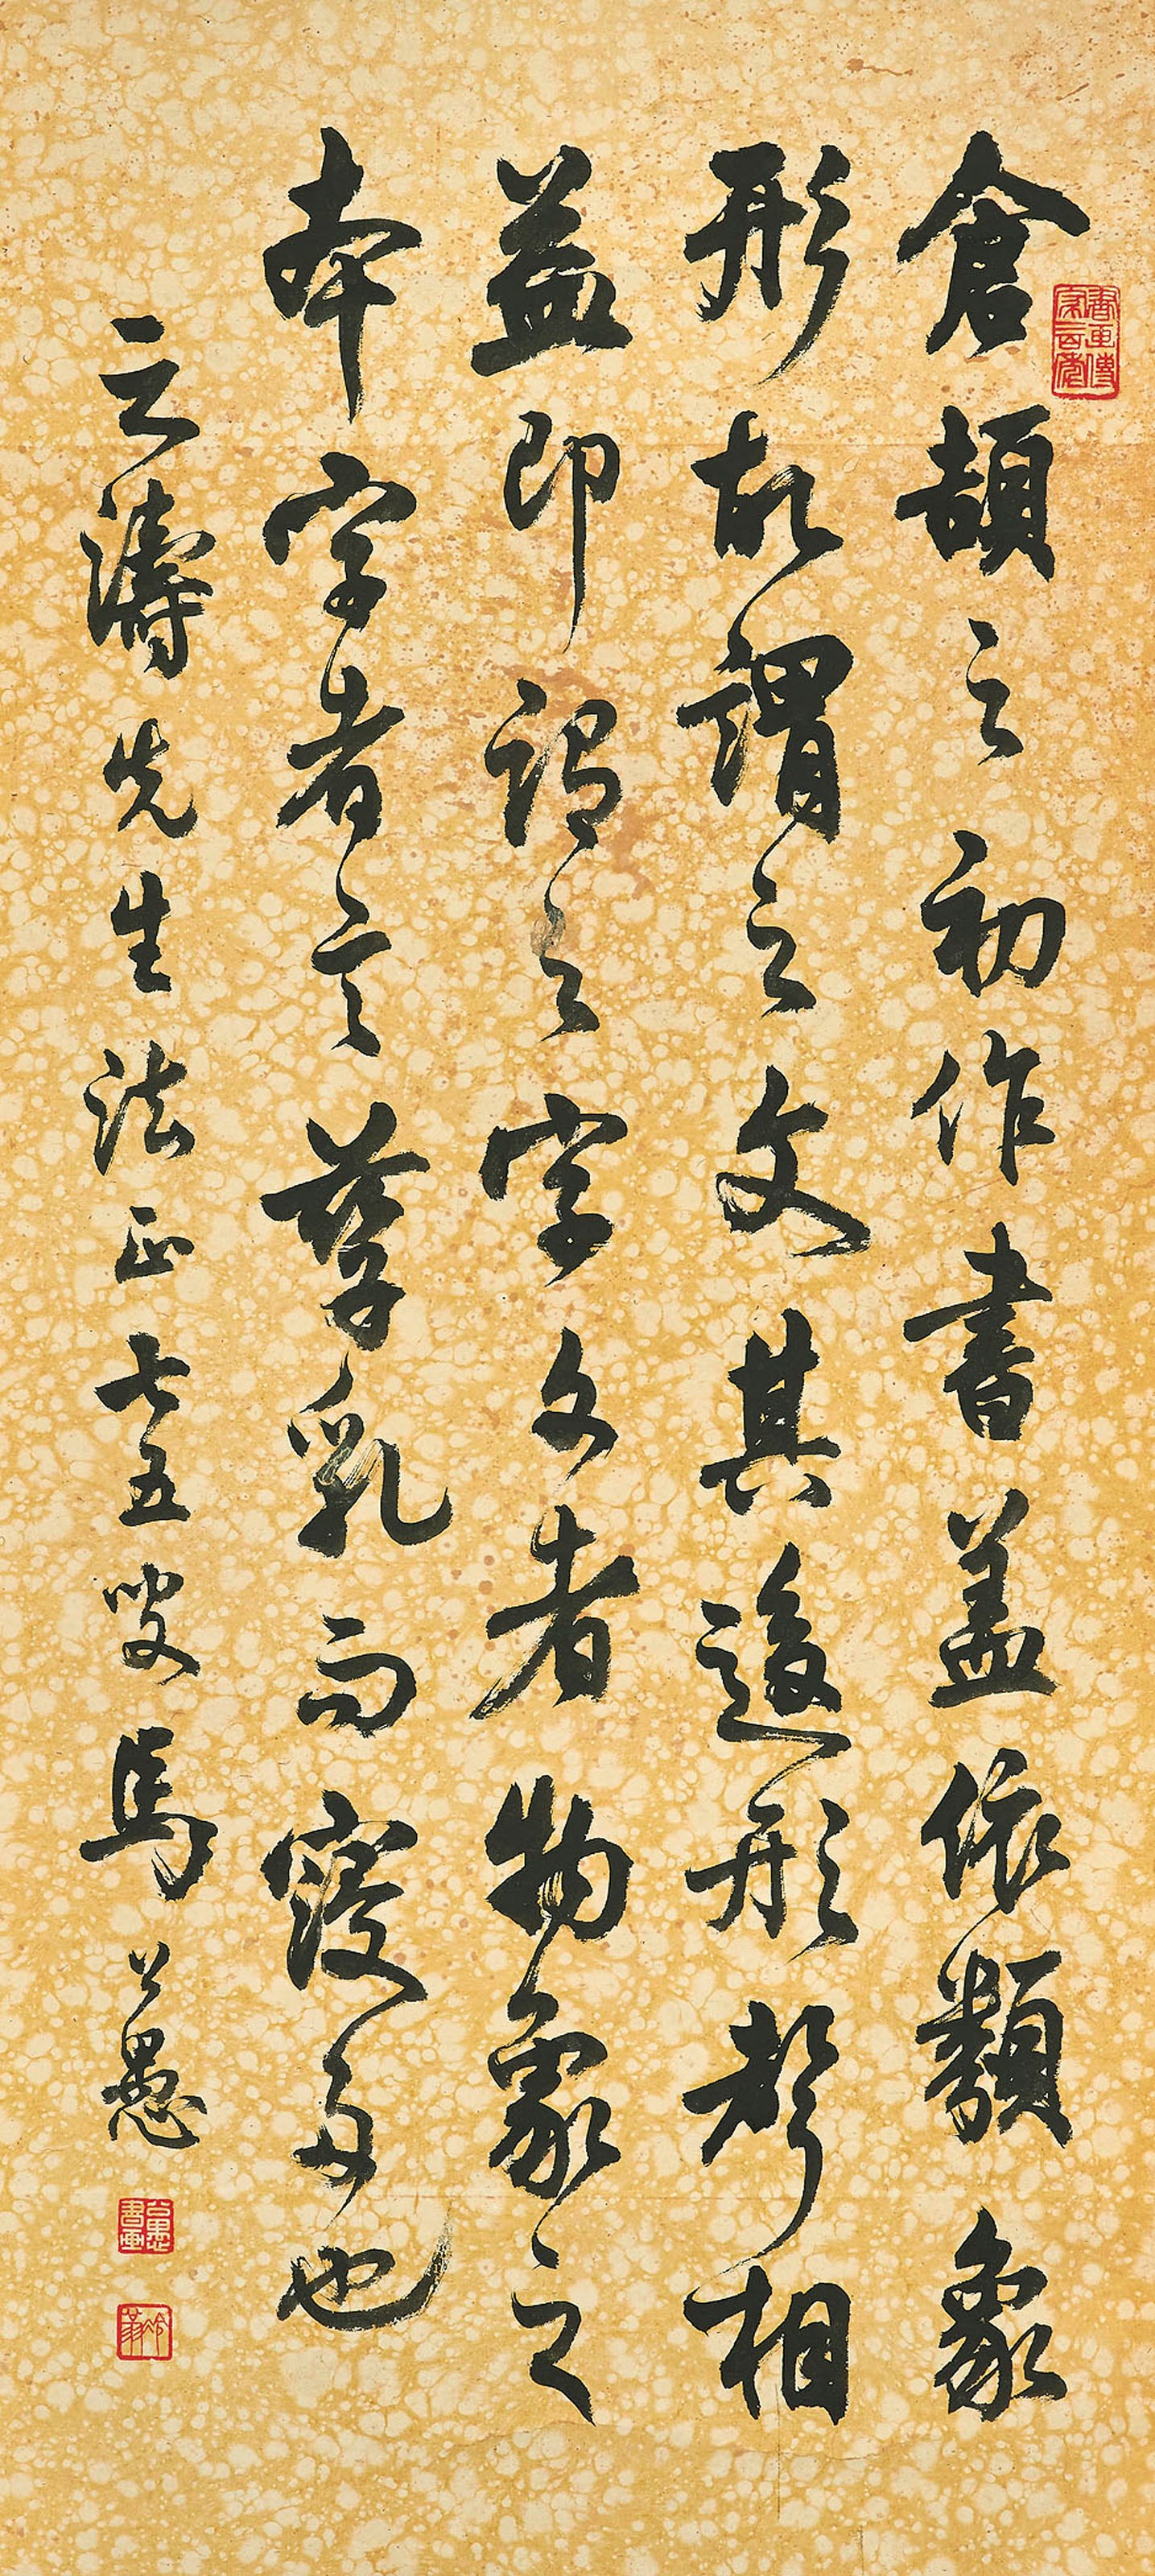 倉頡之初作書蓋依類象
形故謂之文其後形聲相
益即謂之字文者物象之
本字者言孳乳而寖多也
云濤先生法正七五叟馬公愚
公愚書畫